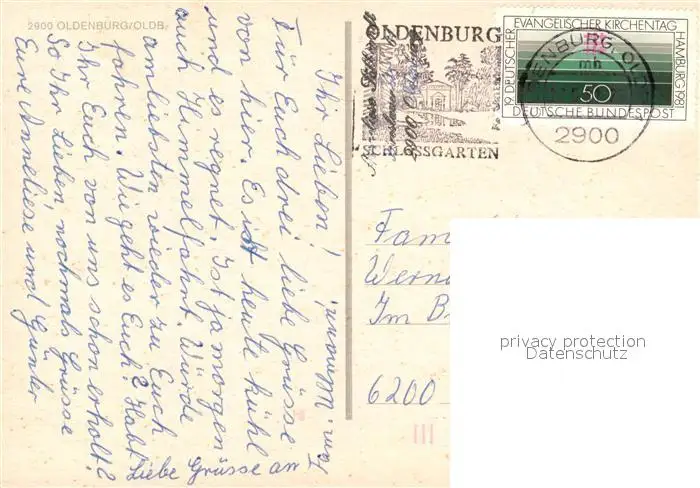 2900 OLDENBURG/OLDB.
Ihr Lieben!
Für Euch drei liebe Grüsse
von hier. Es ist heute kühl
und es regnet. Ist ja morgen
auch Himmelfahrt. Würde
am liebsten wieder zu Euch
fahren. Wie geht es Euch? Habt
Ihr Euch von uns schon erholt?
So Ihr Lieben, nochmals Grüsse
Eure Anneliese und Günter
Liebe Grüsse an
Fam.
OLDENBURG
SCHLOSSGARTEN
19. DEUTSCHER EVANGELISCHER KIRCHENTAG HAMBURG 1981
50
DEUTSCHE BUNDESPOST
OLDENBURG, OLDB
mh
2900
Fam
Wern
Im B
6200
privacy protection
Datenschutz